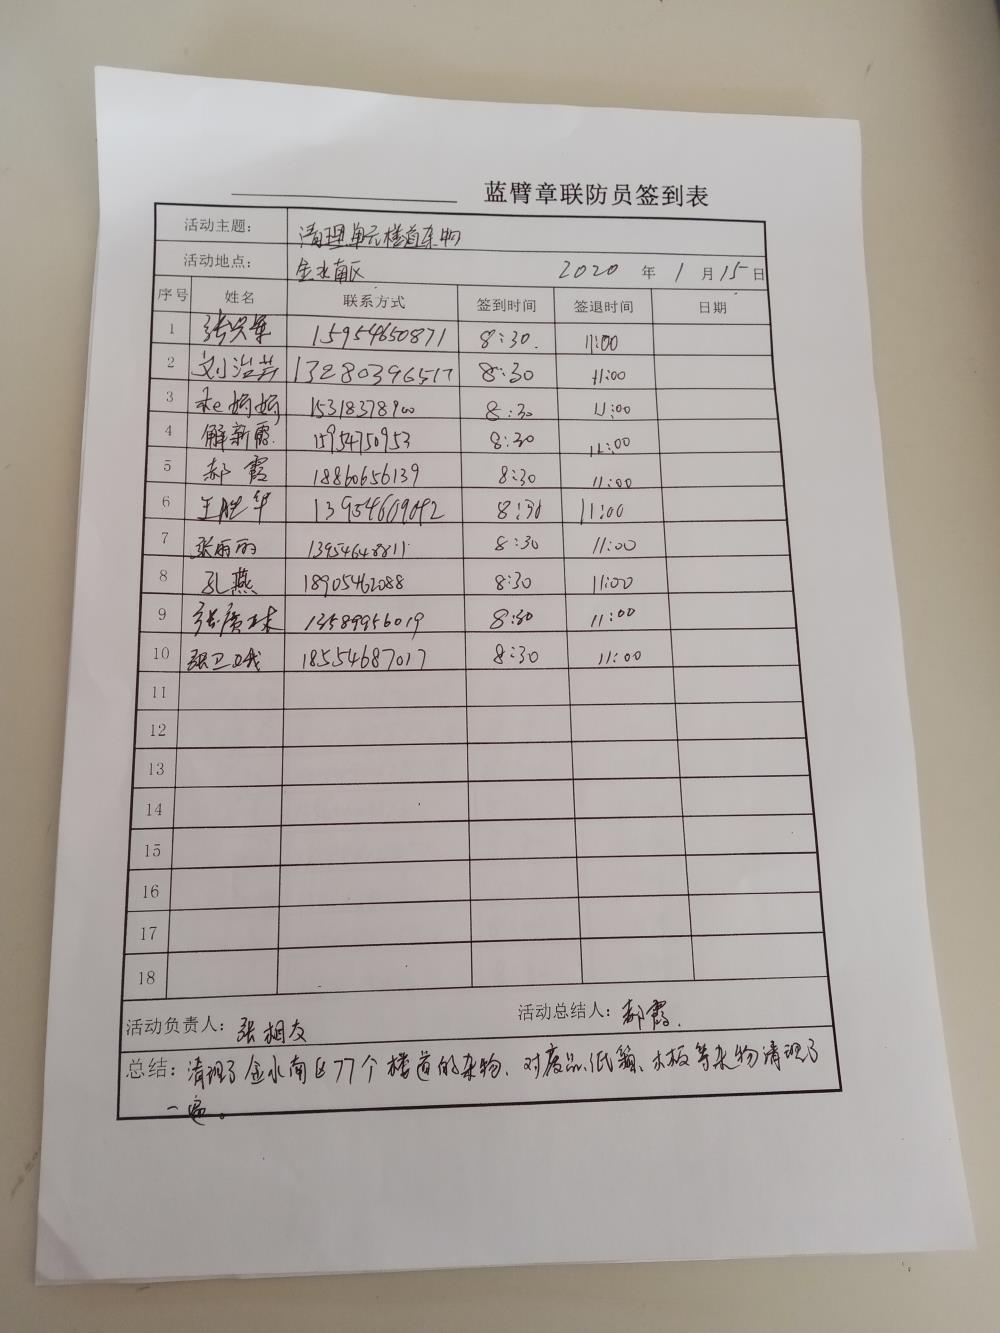 蓝臂章联防员签到表
活动主题： 清理单元楼道杂物
活动地点： 金水南区 2020 年 1 月 15 日
序号 姓名 联系方式 签到时间 签退时间 日期
1 15954650871 8:30. 11:00
2 刘治芸 13280396517 8:30 11:00
3 15318378900 8:30 11:00
4 解新霞 15954750953 8:30 11:00
5 郝霞 18860656139 8:30 11:00
6 王胜华 8:30 11:00
7 张丽丽 13954648811 8:30 11:00
8 孔燕 18905462088 8:30 11:00
9 13589956019 8:30 11:00
10 18554687017 8:30 11:00
11
12
13
14
15
16
17
18
活动负责人： 张相友 活动总结人： 郝霞.
总结： 清理了金水南区77个楼道的杂物、对废品、纸箱、木板等杂物清理了
一遍。